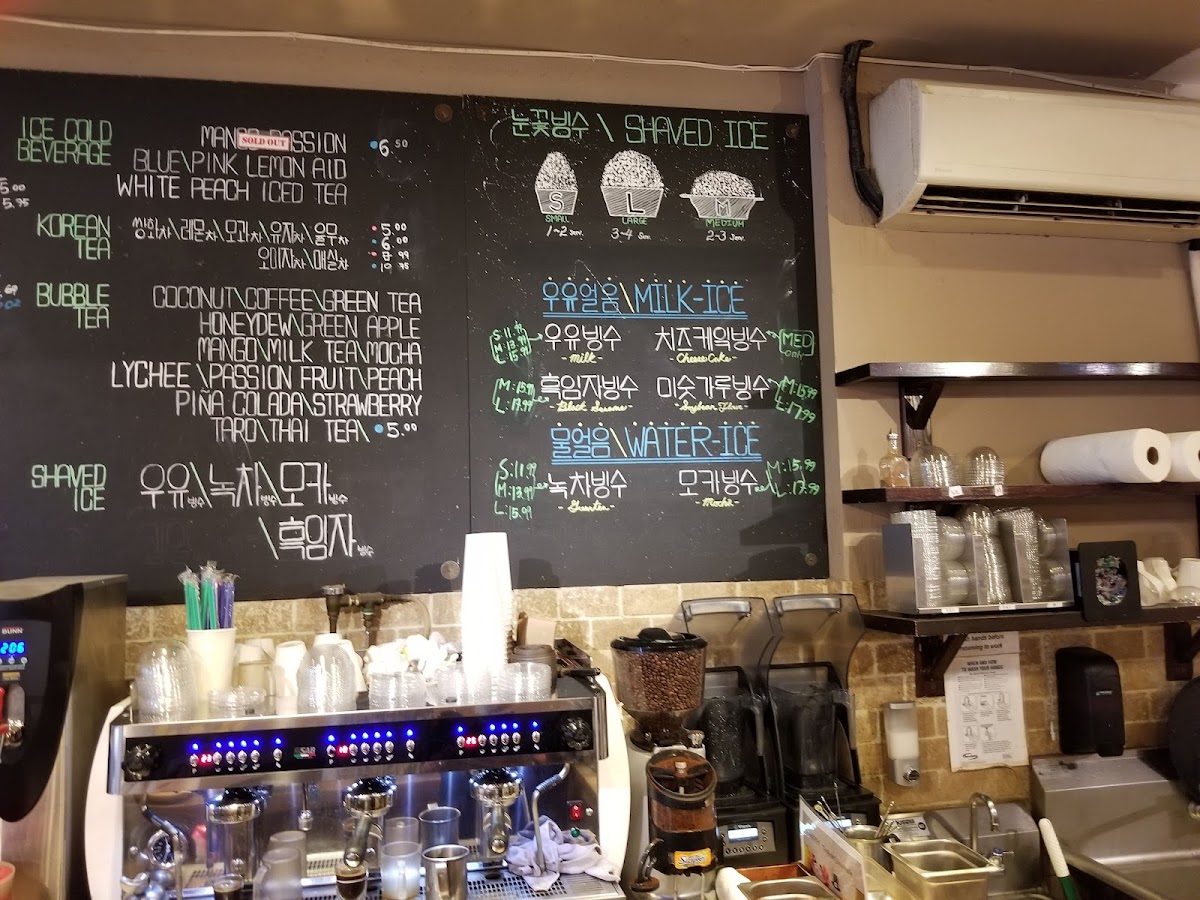 5.00
5.95
ICE COLD
BEVERAGE
MANGO PASSION
SOLD OUT
6.50
BLUE\PINK LEMON AID
WHITE PEACH ICED TEA
KOREAN
TEA
쌍화차\레몬차\모과차\유자차\율무차
오미자차\매실차
5.00
6.00
BUBBLE
TEA
COCONUT\COFFEE\GREEN TEA
HONEYDEW\GREEN APPLE
MANGO\MILK TEA\MOCHA
LYCHEE\PASSION FRUIT\PEACH
PIÑA COLADA\STRAWBERRY
TARO\THAI TEA\ 5.00
SHAVED
ICE
우유빙수\녹차빙수\모카빙수
\흑임자빙수
눈꽃빙수 \ SHAVED ICE
S L M
SMALL LARGE MEDIUM
1~2 Serv. 3~4 Serv. 2~3 Serv.
우유얼음\MILK-ICE
S:11.99
M:13.99
L:15.99
우유빙수
-Milk-
치즈케잌빙수
-Cheese Cake-
MED
only
M:15.99
L:17.99
흑임자빙수
-Black Sesame-
미숫가루빙수
M:15.99
L:17.99
물얼음\WATER-ICE
S:11.99
M:13.99
L:15.99
녹차빙수
모카빙수
-Mocha-
M:15.99
L:17.99
BUNN
206
WHEN AND HOW
TO WASH YOUR HANDS